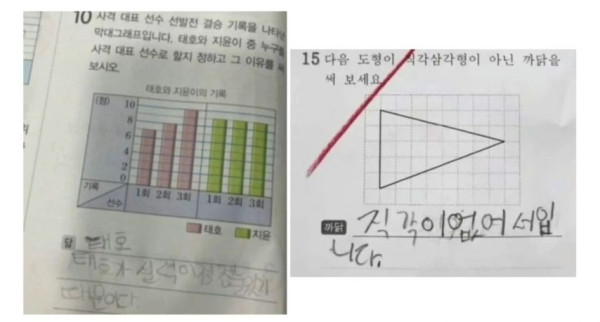 10 사격 대표 선수 선발전 결승 기록을 나타낸
막대그래프입니다. 태호와 지윤이 중 누구를
사격 대표 선수로 할지 정하고 그 이유를 써
보시오.
태호와 지윤이의 기록
(점)
10
8
6
4
2
0
기록
선수
1회 2회 3회 1회 2회 3회
태호 지윤
답 태호
태호가 실력이 점점
때문이다.
15 다음 도형이 직각삼각형이 아닌 까닭을
써 보세요.
까닭 직각이 없어서입
니다.